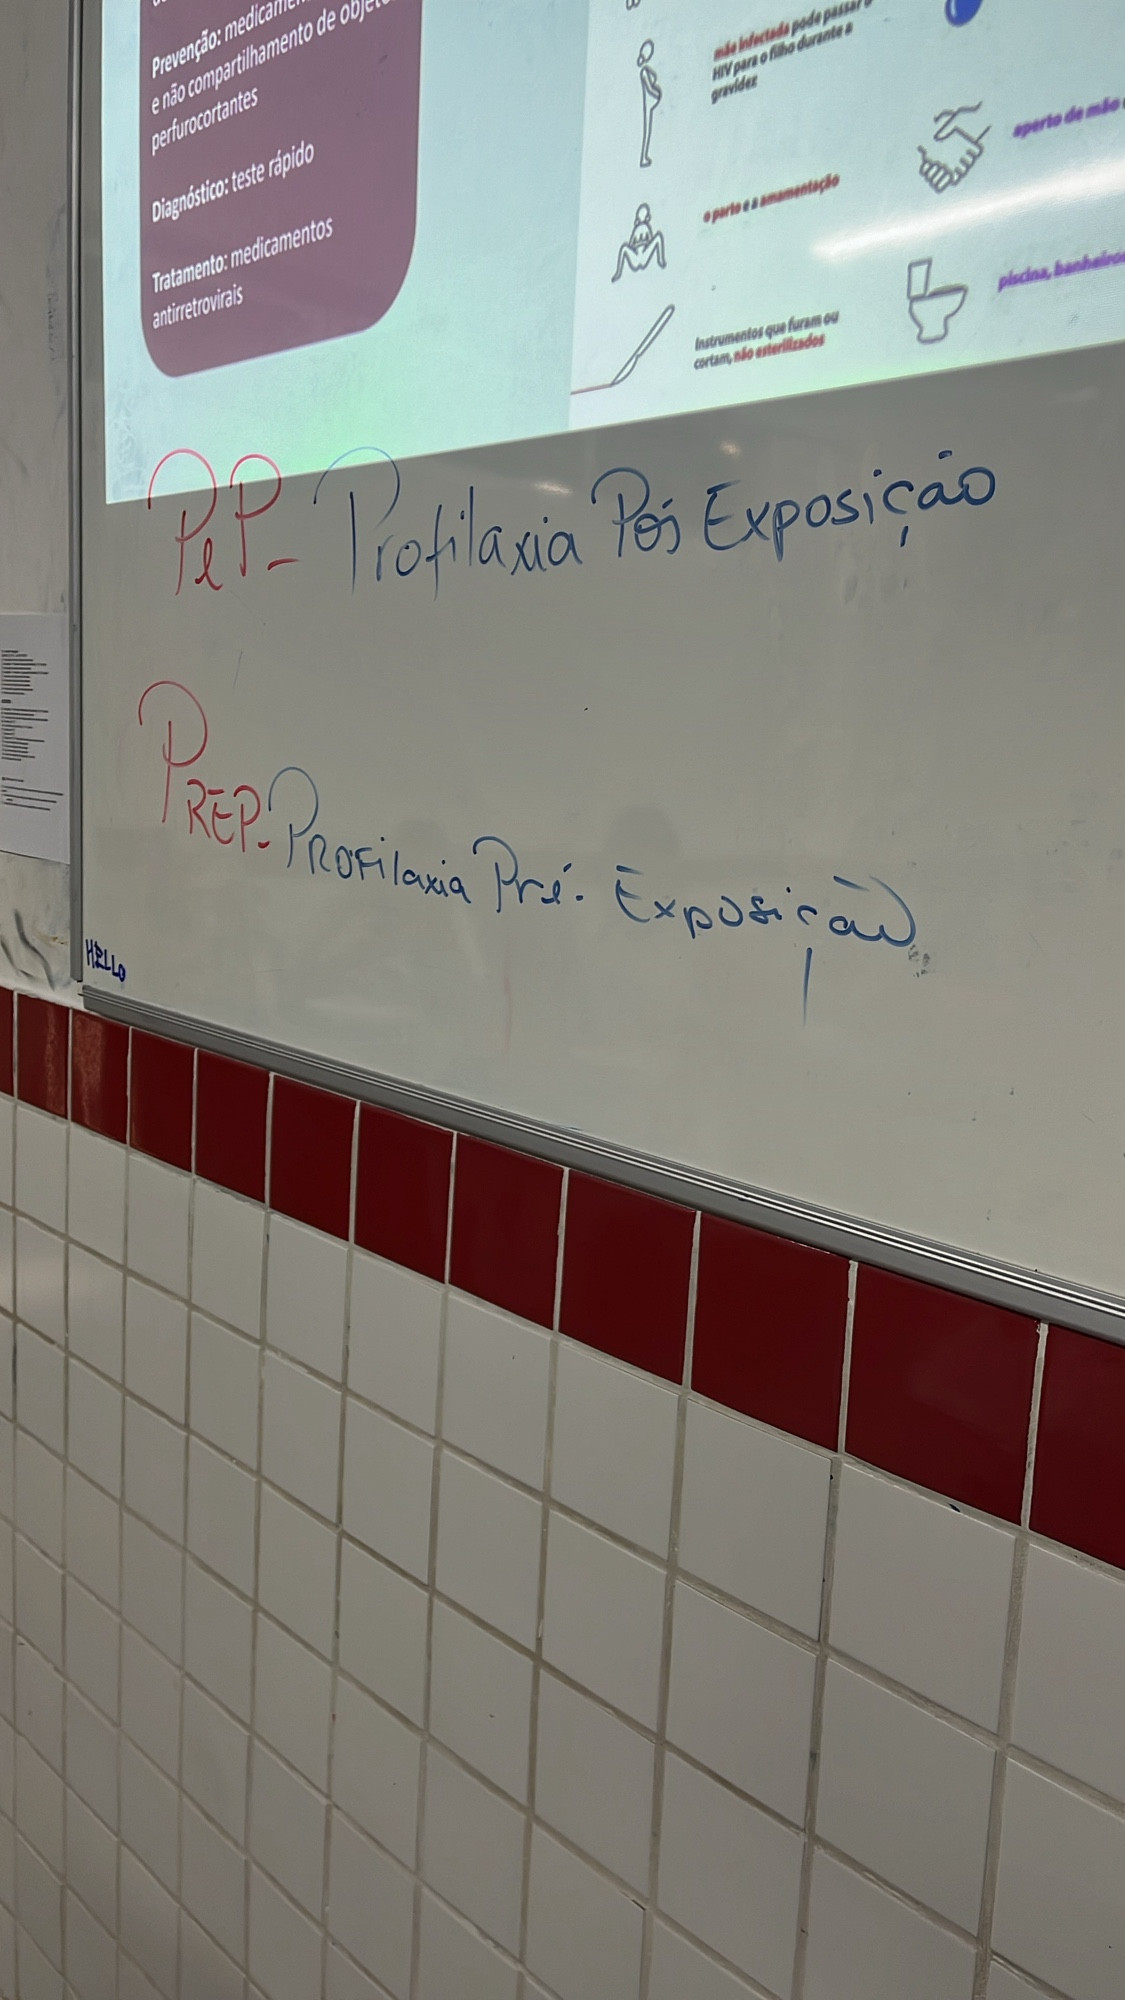 Prevenção:
e não compartilhamento de
perfurocortantes
Diagnóstico: teste rápido
Tratamento: medicamentos
antirretrovirais
mãe infectada pode passar o
HIV para o filho durante a
gravidez
o parto e a amamentação
Instrumentos que furam ou
cortam, não esterilizados
aperto de mão
piscina,
PeP- Profilaxia Pós Exposição
PREP- PROFilaxia Pré- Exposição
HELLO